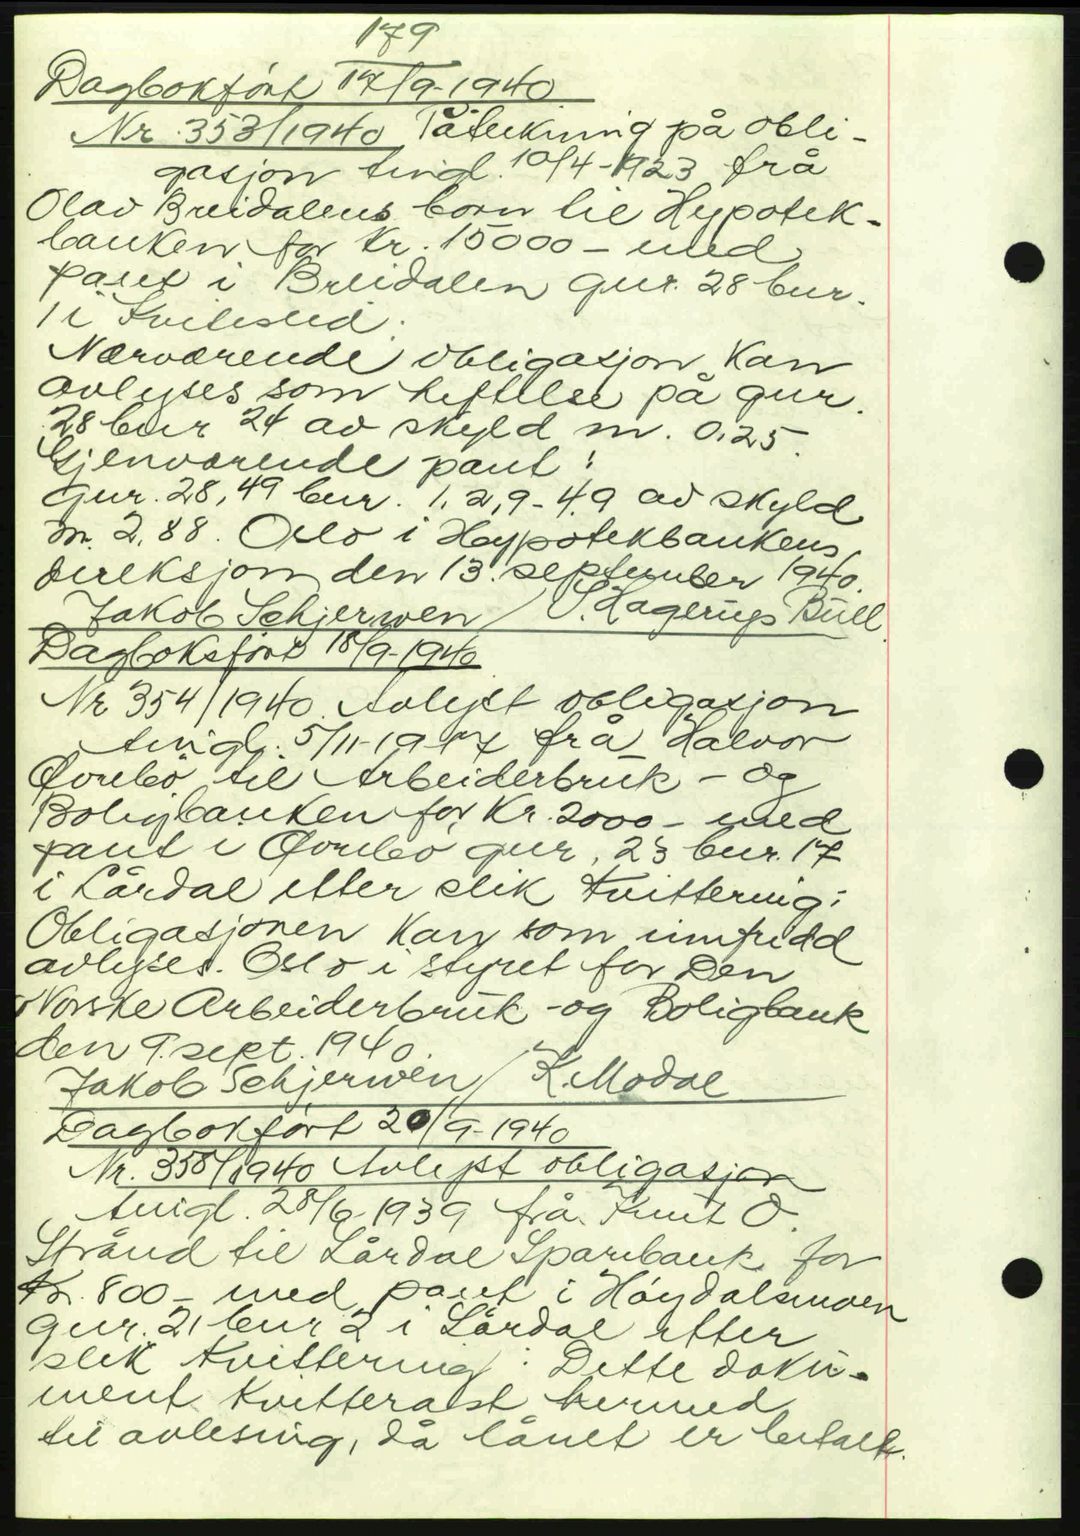 179
Dagbokført 17/9-1940
Nr. 353/1940 Påteikning på obli-
gasjon tingl. 10/4-1923 frå
Olav Breidalens born til Hypotek-
banken for kr. 15000- med
pant i Breidalen gnr. 28 bnr.
1 i Kviteseid.
Nærværende obligasjon kan
avlyses som heftelse på gnr.
28 bnr 24 av skyld m. 0.25.
Gjenværende pant:
gnr. 28, 49 bnr. 1, 2, 9-4.9 av skyld
m. 2.88. Oslo i Hypotekbankens
direksjon den 13. september 1940.
Jakob Schjerwen / S. Hagerup Bull.
Dagboksført 18/9-1940
Nr 354/1940. Avlyst obligasjon
tingl. 5/11-1917 frå Halvor
Øvrebö til Arbeiderbruk- og
Boligbanken for kr. 2000- med
pant i Øvrebö gnr. 23 bnr. 17
i Lårdal etter slik kvittering:
Obligasjonen kan som innfridd
avlyses. Oslo i styret for Den
Norske Arbeiderbruk- og Boligbank
den 9. sept. 1940.
Jakob Schjerwen / K. Modal
Dagbokført 20/9-1940
Nr. 358/1940 Avlyst obligasjon
tingl. 28/6-1939 frå Knut O.
Strånd til Lårdal Sparebank for
kr. 800- med pant i Høydalsmoen
gnr. 21 bnr 2 i Lårdal etter
slik kvittering: Dette doku-
ment kvitterast hermed
til avlesing, då lånet er betalt.